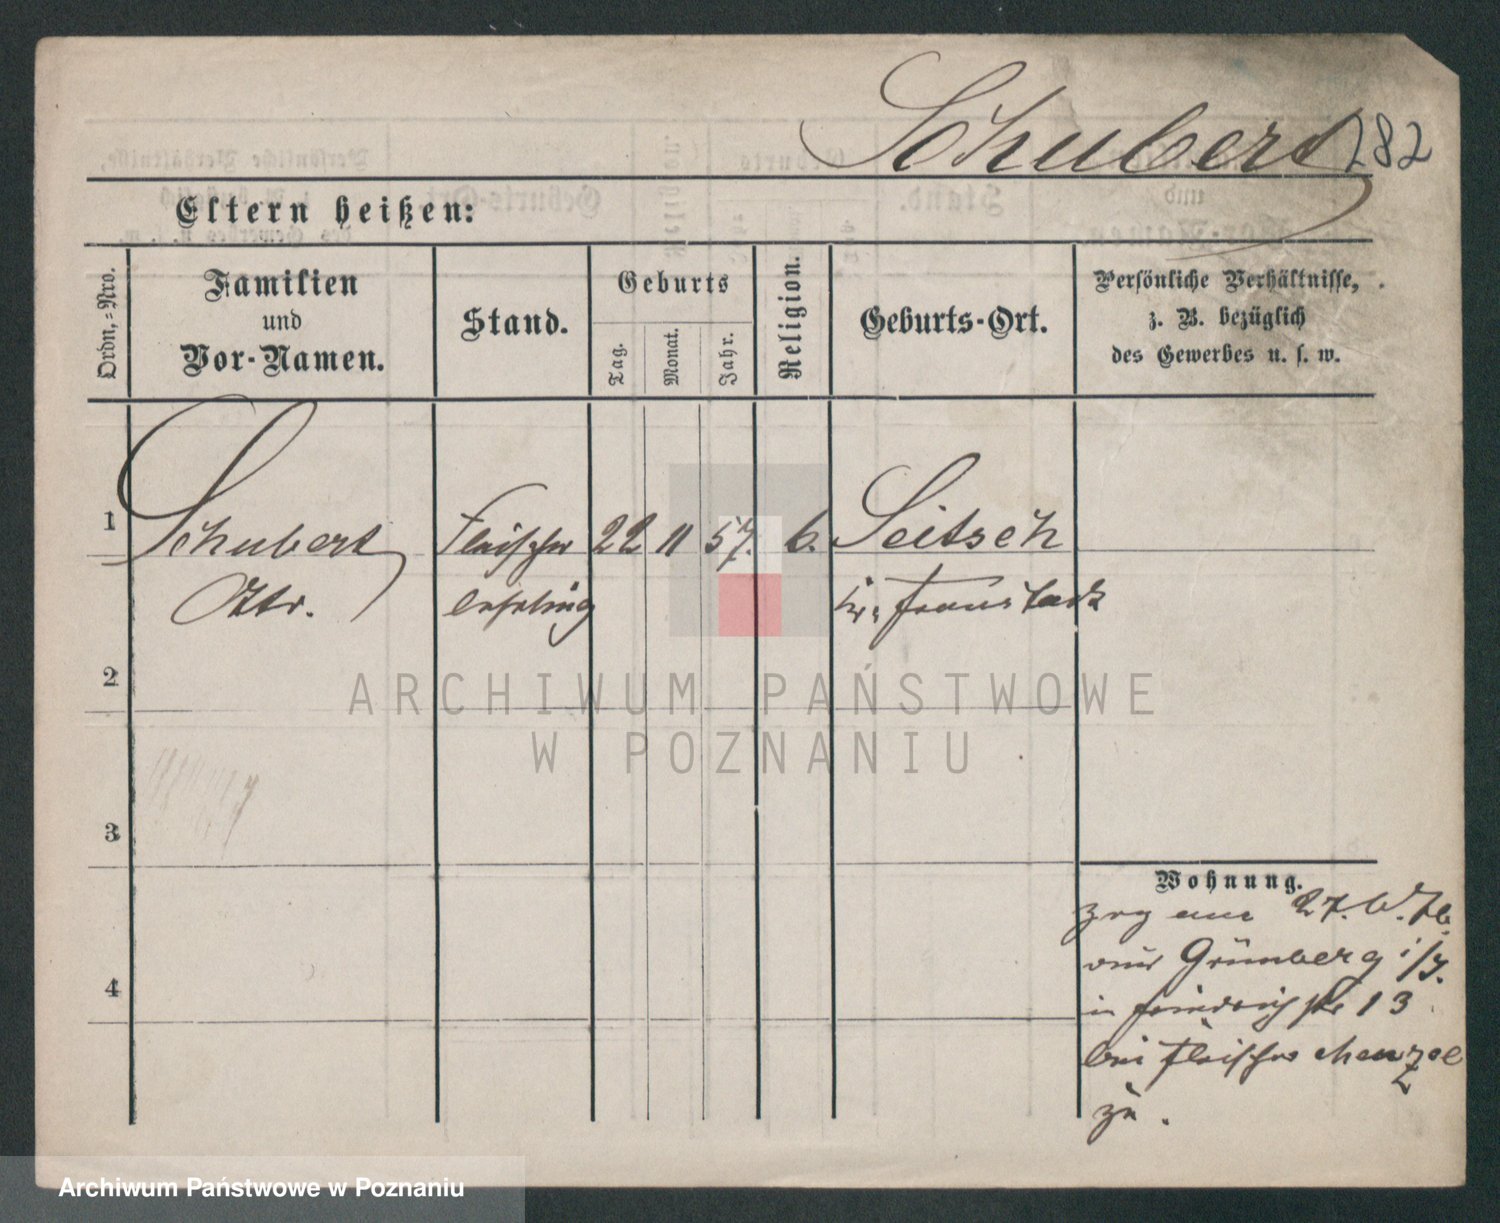 Schubert 282
Eltern heißen:
Ordn.-Nro.
Familien
und
Vor-Namen.
Stand.
Geburts
Tag.
Monat.
Jahr.
Religion.
Geburts-Ort.
Persönliche Verhältnisse,
z. B. bezüglich
des Gewerbes u. s. w.
1
Schubert
Fleischer
22 11 57.
Seitsch
Otto.
lehrling
Kr. Fraustadt
2
3
4
Wohnung.
zog am 27. 6. 76.
von Grünberg i/
in Friedrichstr 13
bei Fleischer Menzel
zu.
ARCHIWUM PAŃSTWOWE
W POZNANIU
Archiwum Państwowe w Poznaniu